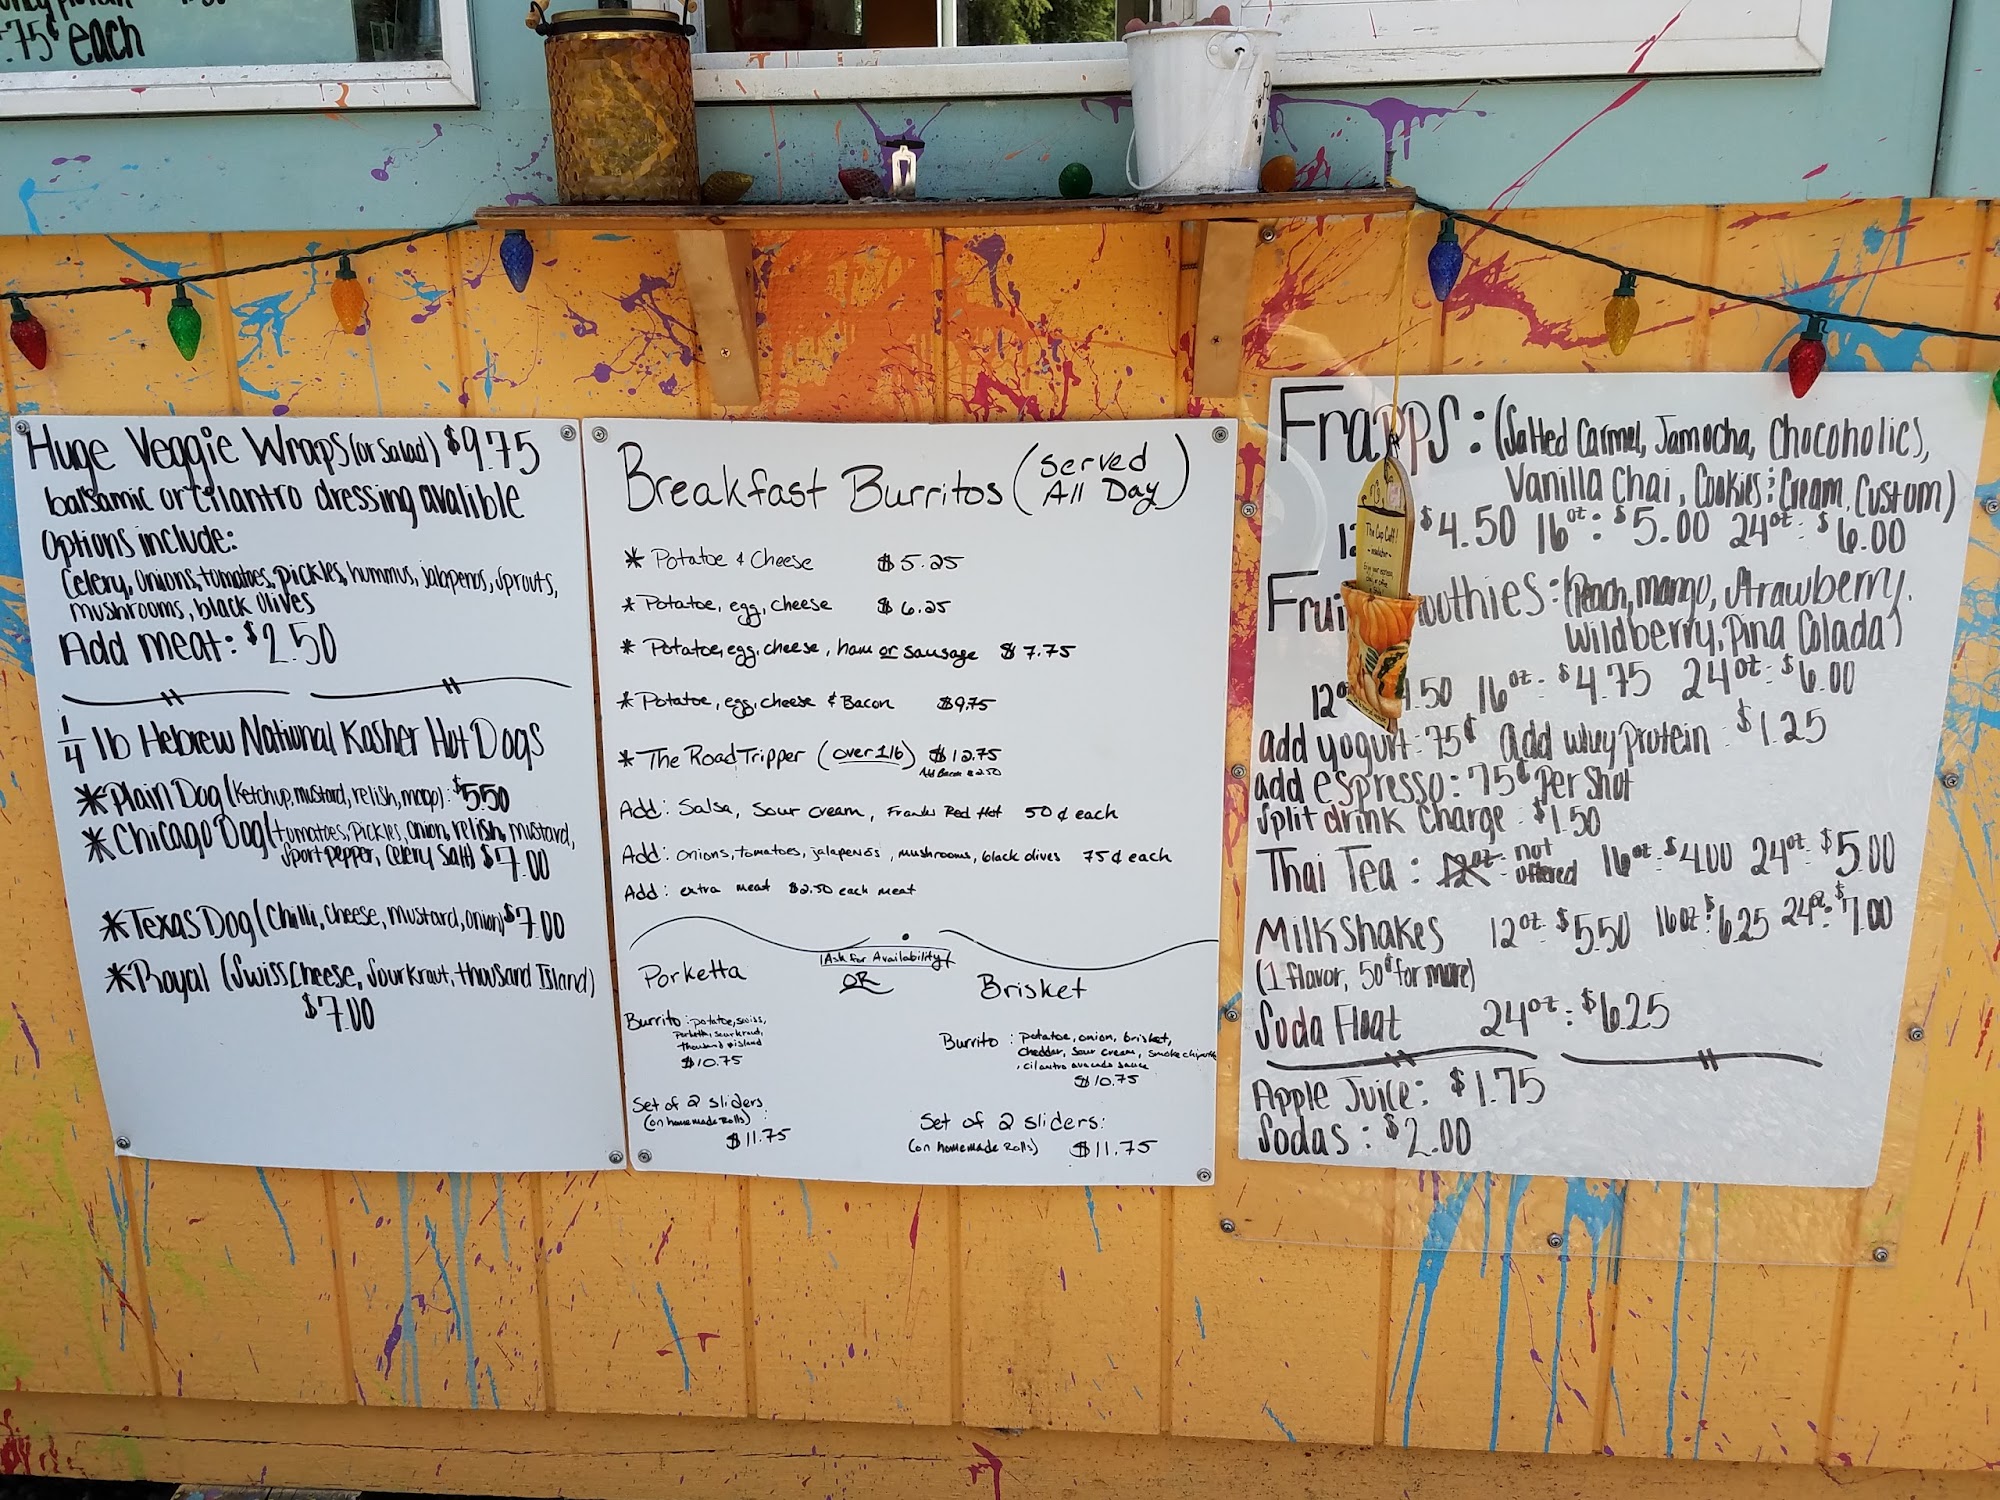 .75¢ each
Huge Veggie Wraps (or Salad) $9.75
balsamic or cilantro dressing avalible
Options include:
Celery, onions, tomatoes, pickles, hummus, jalapenos, sprouts,
mushrooms, black olives
Add meat: $2.50
1/4 lb Hebrew National Kosher Hot Dogs
* Plain Dog (Ketchup, mustard, relish, mayo): $5.50
* Chicago Dog (tomatoes, pickles, onion, relish, mustard,
Sport pepper, Celery Salt) $7.00
* Texas Dog (Chilli, Cheese, mustard, onion) $7.00
* Royal (Swiss Cheese, Sourkraut, thousand Island)
$7.00
Breakfast Burritos (Served
All Day)
* Potatoe & Cheese $5.25
* Potatoe, egg, cheese $6.25
* Potatoe, egg, cheese, ham or sausage $7.75
* Potatoe, egg, cheese & Bacon $9.75
* The Road Tripper (over 1 lb) $12.75
Add Bacon $2.50
Add: Salsa, Sour cream, Franks Red Hot 50¢ each
Add: onions, tomatoes, jalapenos, mushrooms, black olives 75¢ each
Add: extra meat $2.50 each meat
(Ask for Availability)
Porketta OR Brisket
Burrito: potatoe, swiss,
porketta, sourkraut,
thousand island
$10.75
Set of 2 sliders
(on homemade Rolls)
$11.75
Burrito: potatoe, onion, brisket,
cheddar, sour cream, smoke chipotle
, cilantro avacado sauce
$10.75
Set of 2 sliders:
(on homemade Rolls) $11.75
Frapps: (Salted Carmel, Jamocha, Chocoholics,
Vanilla Chai, Cookies & Cream, Custom)
12 $4.50 16oz: $5.00 24oz: $6.00
Frui moothies: (Peach, mango, Strawberry,
Wildberry, Pina Colada)
12o 4.50 16oz: $4.75 24oz: $6.00
add yogurt: 75¢ add whey protein: $1.25
add espresso: 75¢ Per Shot
Split drink Charge: $1.50
Thai Tea: 12oz not
offered 16oz: $4.00 24oz: $5.00
Milkshakes 12oz: $5.50 16oz: $6.25 24oz: $7.00
(1 flavor, 50¢ for more)
Soda Float 24oz: $6.25
Apple Juice: $1.75
Sodas: $2.00